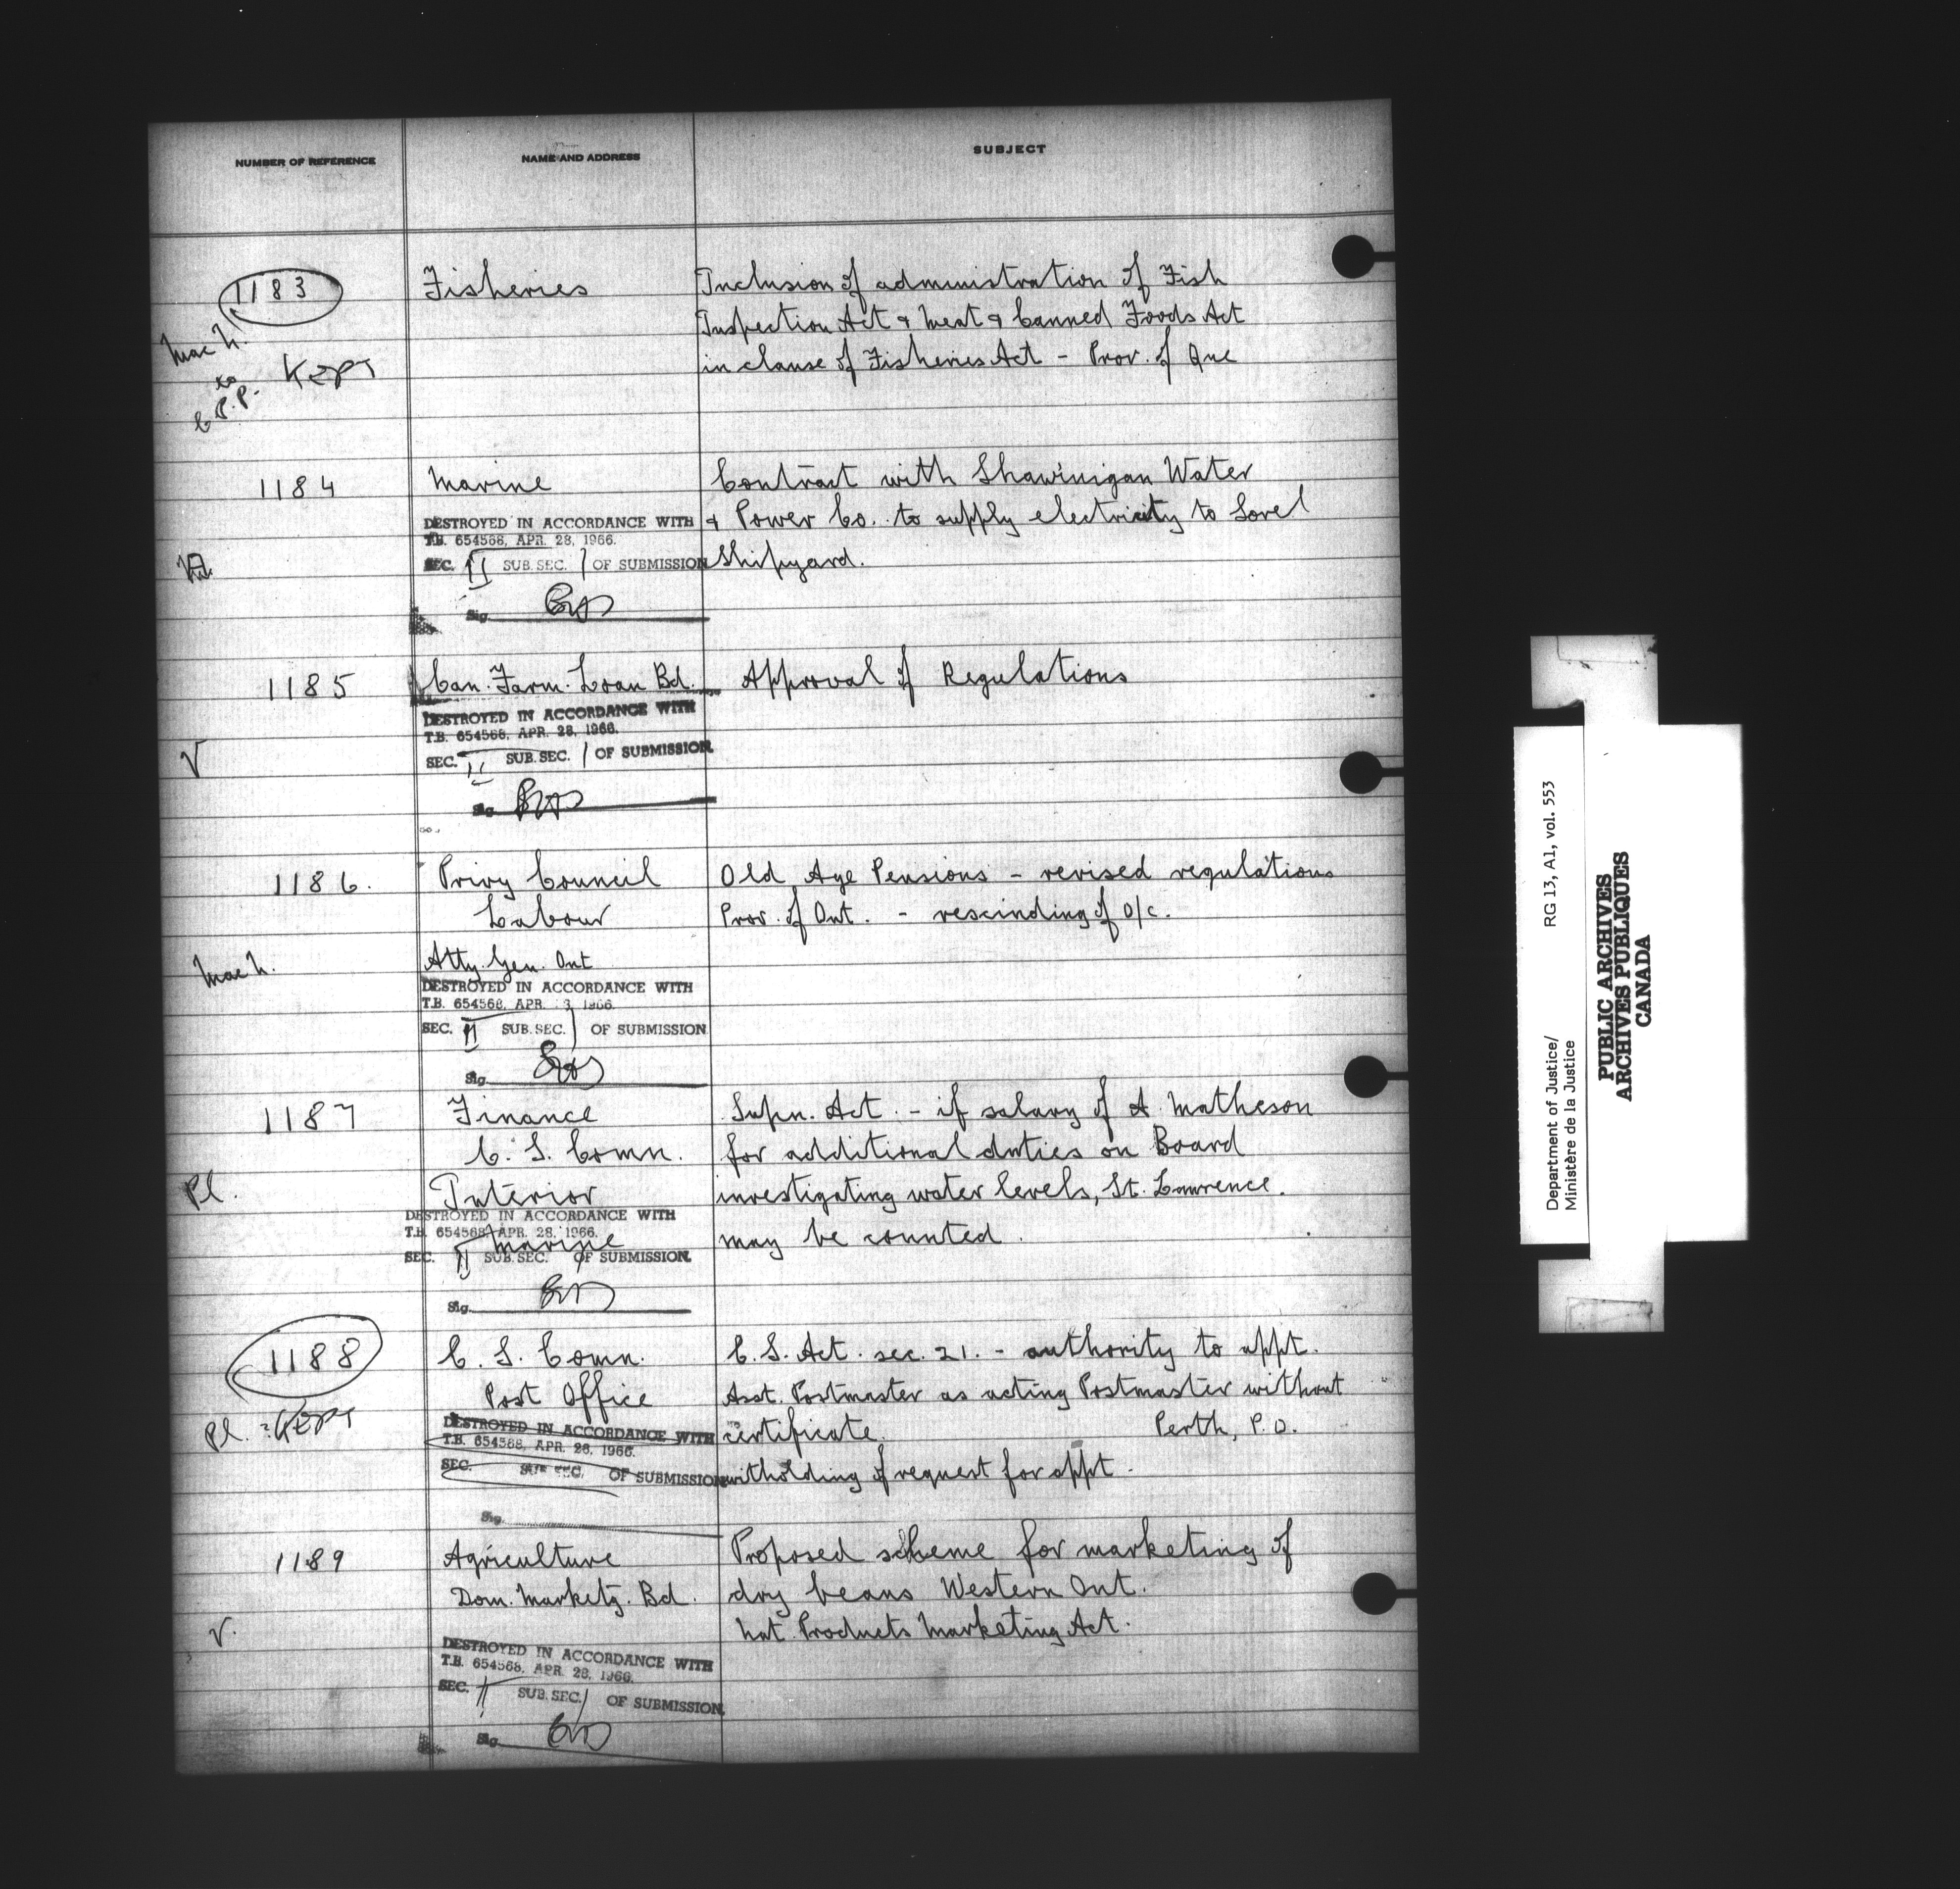 NUMBER OF REFERENCE NAME AND ADDRESS SUBJECT
1183 Fisheries Inclusion of administration of Fish
Inspection Act & Meat & Canned Foods Act
in clause of Fisheries Act - Prov. of Que
Mac N.
to
C.P.P.
KEPT
1184 Marine Contract with Shawinigan Water
& Power Co. to supply electricity to Sorel
Shipyard.
DESTROYED IN ACCORDANCE WITH
T.B. 654568, APR. 28, 1966.
SEC. II SUB. SEC. 1 OF SUBMISSION
Sig.
1185 Can. Farm. Loan Bd. Approval of Regulations
DESTROYED IN ACCORDANCE WITH
T.B. 654568, APR. 28, 1966.
V SEC. II SUB. SEC. 1 OF SUBMISSION
Sig.
1186. Privy Council Old Age Pensions - revised regulations
Labour Prov. of Ont. - rescinding of O/C.
Mac N. Atty. Gen. Ont
DESTROYED IN ACCORDANCE WITH
T.B. 654568, APR. 1966.
SEC. II SUB. SEC. 1 OF SUBMISSION
Sig.
1187 Finance Supn. Act. - if salary of A. Matheson
C. S. Comn. for additional duties on Board
Pl. Interior investigating water levels, St. Lawrence.
Marine may be counted.
DESTROYED IN ACCORDANCE WITH
T.B. 654568, APR. 28, 1966.
SEC. II SUB. SEC. 1 OF SUBMISSION.
Sig.
1188 C. S. Comn. C.S. Act. sec. 21. - authority to appt.
Post Office Asst. Postmaster as acting Postmaster without
Pl. KEPT certificate. Perth, P.O.
witholding of request for appt.
DESTROYED IN ACCORDANCE WITH
T.B. 654568, APR. 28, 1966.
SEC. SUB SEC. OF SUBMISSION
Sig.
1189 Agriculture Proposed scheme for marketing of
Dom. Marketg. Bd. dry beans Western Ont.
V. Nat. Products Marketing Act.
DESTROYED IN ACCORDANCE WITH
T.B. 654568, APR. 28, 1966.
SEC. II SUB. SEC. 1 OF SUBMISSION
Sig.
Department of Justice/ RG 13, A1, vol. 553
Ministère de la Justice
PUBLIC ARCHIVES
ARCHIVES PUBLIQUES
CANADA